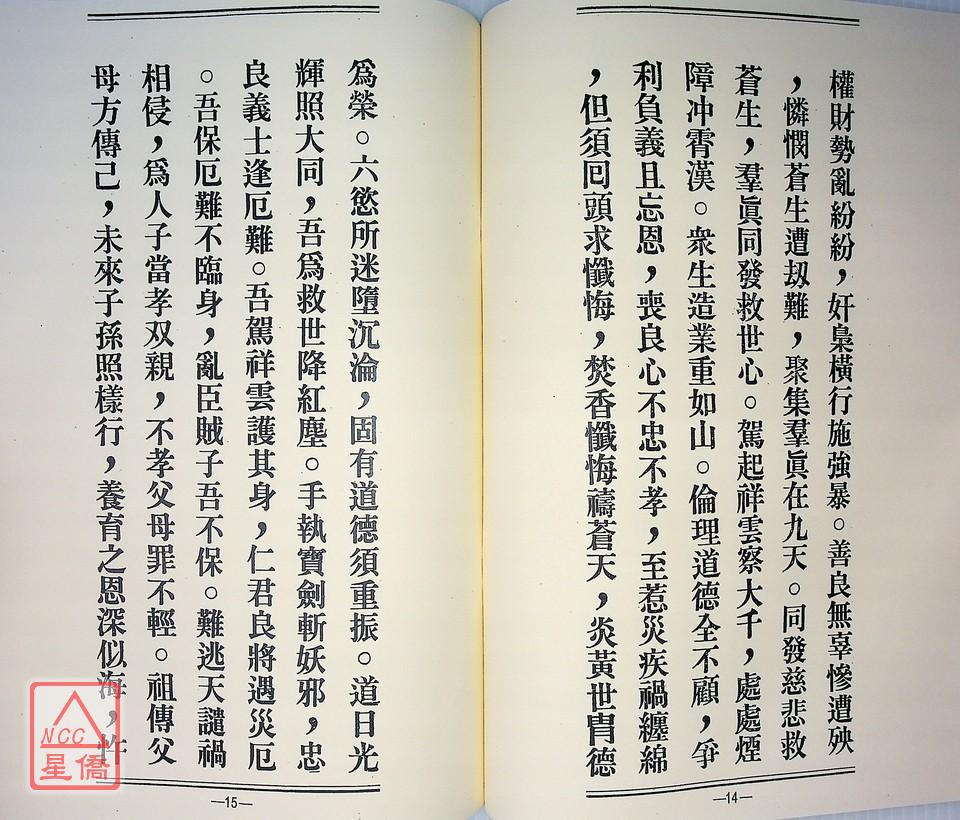 權財勢亂紛紛，奸梟橫行施強暴。善良無辜慘遭殃
，憐憫蒼生遭刼難，聚集羣眞在九天。同發慈悲救
蒼生，羣眞同發救世心。駕起祥雲察大千，處處煙
障冲霄漢。衆生造業重如山。倫理道德全不顧，爭
利負義且忘恩，喪良心不忠不孝，至惹災疾禍纏綿
，但須囘頭求懺悔，焚香懺悔禱蒼天，炎黃世冑德
—14—
爲榮。六慾所迷墮沉淪，固有道德須重振。道日光
輝照大同，吾爲救世降紅塵。手執寶劍斬妖邪，忠
良義士逢厄難。吾駕祥雲護其身，仁君良將遇災厄
。吾保厄難不臨身，亂臣賊子吾不保。難逃天譴禍
相侵，爲人子當孝双親，不孝父母罪不輕。祖傳父
母方傳己，未來子孫照樣行，養育之恩深似海，忤
—15—
NCC
星僑